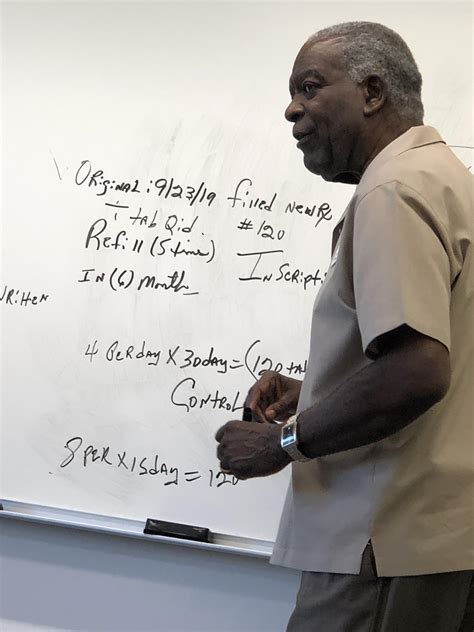 Original: 9/23/19 filled new Rx
1 tab Qid. #120
Refill (5 time) Inscripti
In (6) Month
ritten
4 per day x 30 day = (120 tab
Control
8 per x 15 day = 120